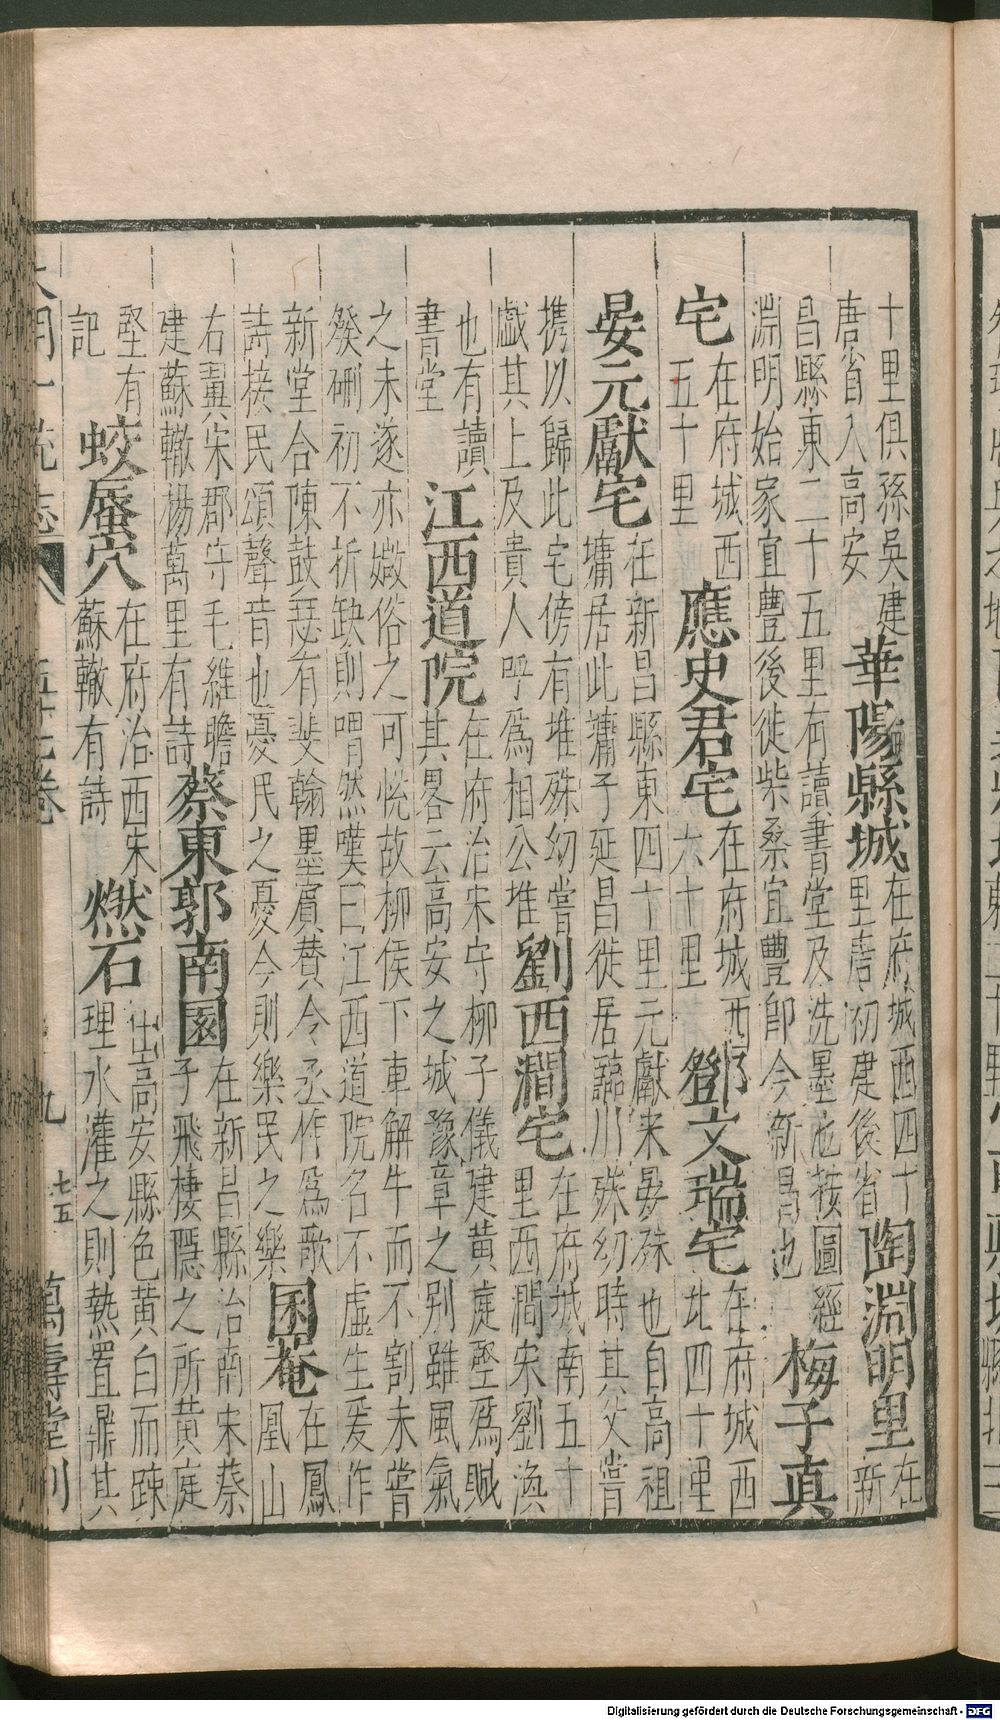 十里俱孫吳建唐省入高安華陽縣城在府城西四十里唐初建後省陶淵明里在新
昌縣東二十五里有讀書堂及洗墨池按圖經淵明始家宜豐後徙柴桑宜豐即今新昌也梅子真
宅在府城西五十里應史君宅在府城西六十里鄧文瑞宅在府城西北四十里
晏元獻宅在新昌縣東四十里元獻来晏殊也自高祖墉居此墉子延昌徙居臨川殊幼時其父嘗
携以歸此宅傍有堆殊幼嘗戲其上及貴人呼爲相公堆劉西澗宅在府城南五十里西澗宋劉渙
也有讀書堂江西道院在府治宋守柳子儀建黄庭堅爲賦其畧云高安之城豫章之别雖風氣
之未遂亦媺俗之可恱故柳侯下車解牛而不割未嘗發硎初不折缺則喟然嘆曰江西道院名不虛生爰作
新堂合陳鼓瑟有斐翰墨賔賛令丞作爲歌詩接民頌聲音也憂民之憂今則樂民之樂困菴在鳳凰山
右翼宋郡守毛維瞻建蘇轍楊萬里有詩蔡東郭南園在新昌縣治南宋蔡子飛棲隱之所黄庭
堅有記蛟蜃穴在府治西宋蘇轍有詩燃石出高安縣色黄白而踈理水灌之則熱置鼎其
大明一統志 卷 九 七五 萬壽堂刊
Digitalisierung gefördert durch die Deutsche Forschungsgemeinschaft - DFG